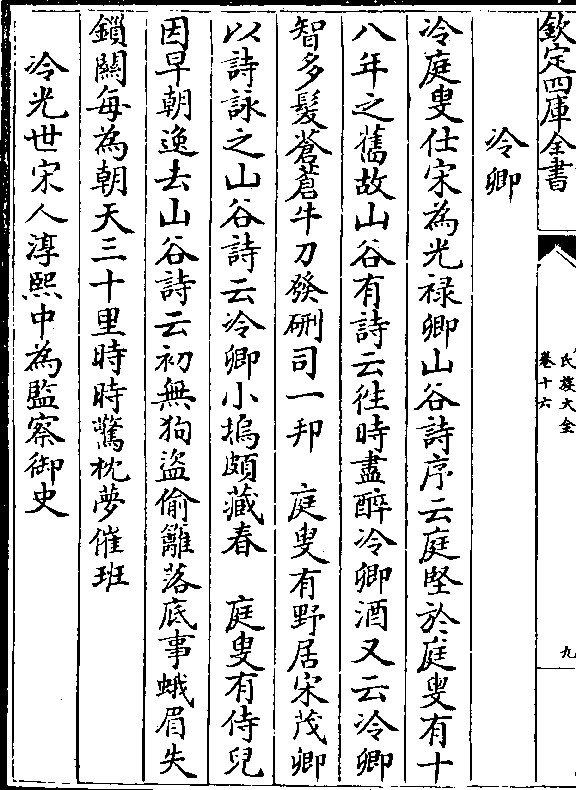 欽定四庫全書
氏族大全
卷十六
九
冷卿
冷庭叟仕宋為光禄卿山谷詩序云庭堅於庭叟有十
八年之舊故山谷有詩云往時盡醉冷卿酒又云冷卿
智多髮蒼蒼牛刀發硎司一邦　庭叟有野居宋茂卿
以詩詠之山谷詩云冷卿小塢頗藏春　庭叟有侍兒
因早朝逸去山谷詩云初無狗盜偷籬落底事蛾眉失
鎖關每為朝天三十里時時驚枕夢催班
冷光世宋人淳熙中為監察御史